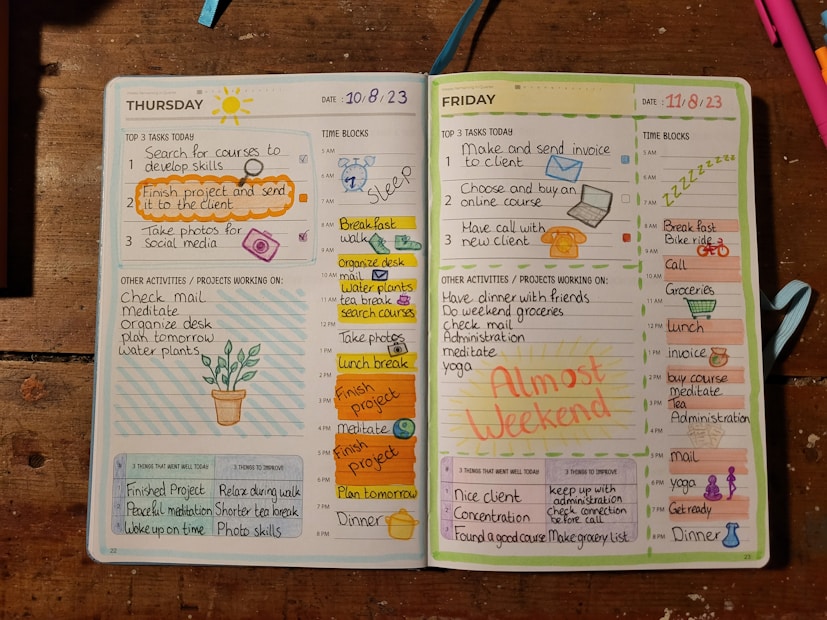 THURSDAY
DATE : 10/8/23
TOP 3 TASKS TODAY
1 Search for courses to
develop skills
2 Finish project and send
it to the client
3 Take photos for
social media
OTHER ACTIVITIES / PROJECTS WORKING ON:
Check mail
meditate
Organize desk
plan tomorrow
Water plants
3 THINGS THAT WENT WELL TODAY
3 THINGS TO IMPROVE
1 Finished Project
Relax during walk
2 Peaceful meditation
Shorter tea break
3 Woke up on time
Photo skills
22
TIME BLOCKS
5 AM
6 AM
Sleep
7 AM
8 AM
Breakfast
walk
9 AM
Organize desk
10 AM
mail
Water plants
11 AM
tea break
search courses
12 PM
Take photos
1 PM
Lunch break
2 PM
Finish
3 PM
project
4 PM
Meditate
5 PM
Finish
project
6 PM
Plan tomorrow
7 PM
Dinner
8 PM
FRIDAY
DATE : 11/8/23
TOP 3 TASKS TODAY
1 Make and send invoice
to client
2 Choose and buy an
online course
3 Have call with
new client
OTHER ACTIVITIES / PROJECTS WORKING ON:
Have dinner with friends
Do weekend groceries
check mail
Administration
meditate
yoga
Almost
Weekend
3 THINGS THAT WENT WELL TODAY
3 THINGS TO IMPROVE
1 Nice client
keep up with
administration
2 Concentration
check connection
before call
3 Found a good course
Make grocery list
TIME BLOCKS
5 AM
6 AM
zzzzzzzzzz
7 AM
8 AM
Breakfast
Bike ride
9 AM
Call
10 AM
Groceries
11 AM
12 PM
Lunch
1 PM
invoice
2 PM
buy course
meditate
3 PM
Tea
Administration
4 PM
5 PM
mail
6 PM
yoga
7 PM
Get ready
8 PM
Dinner
23